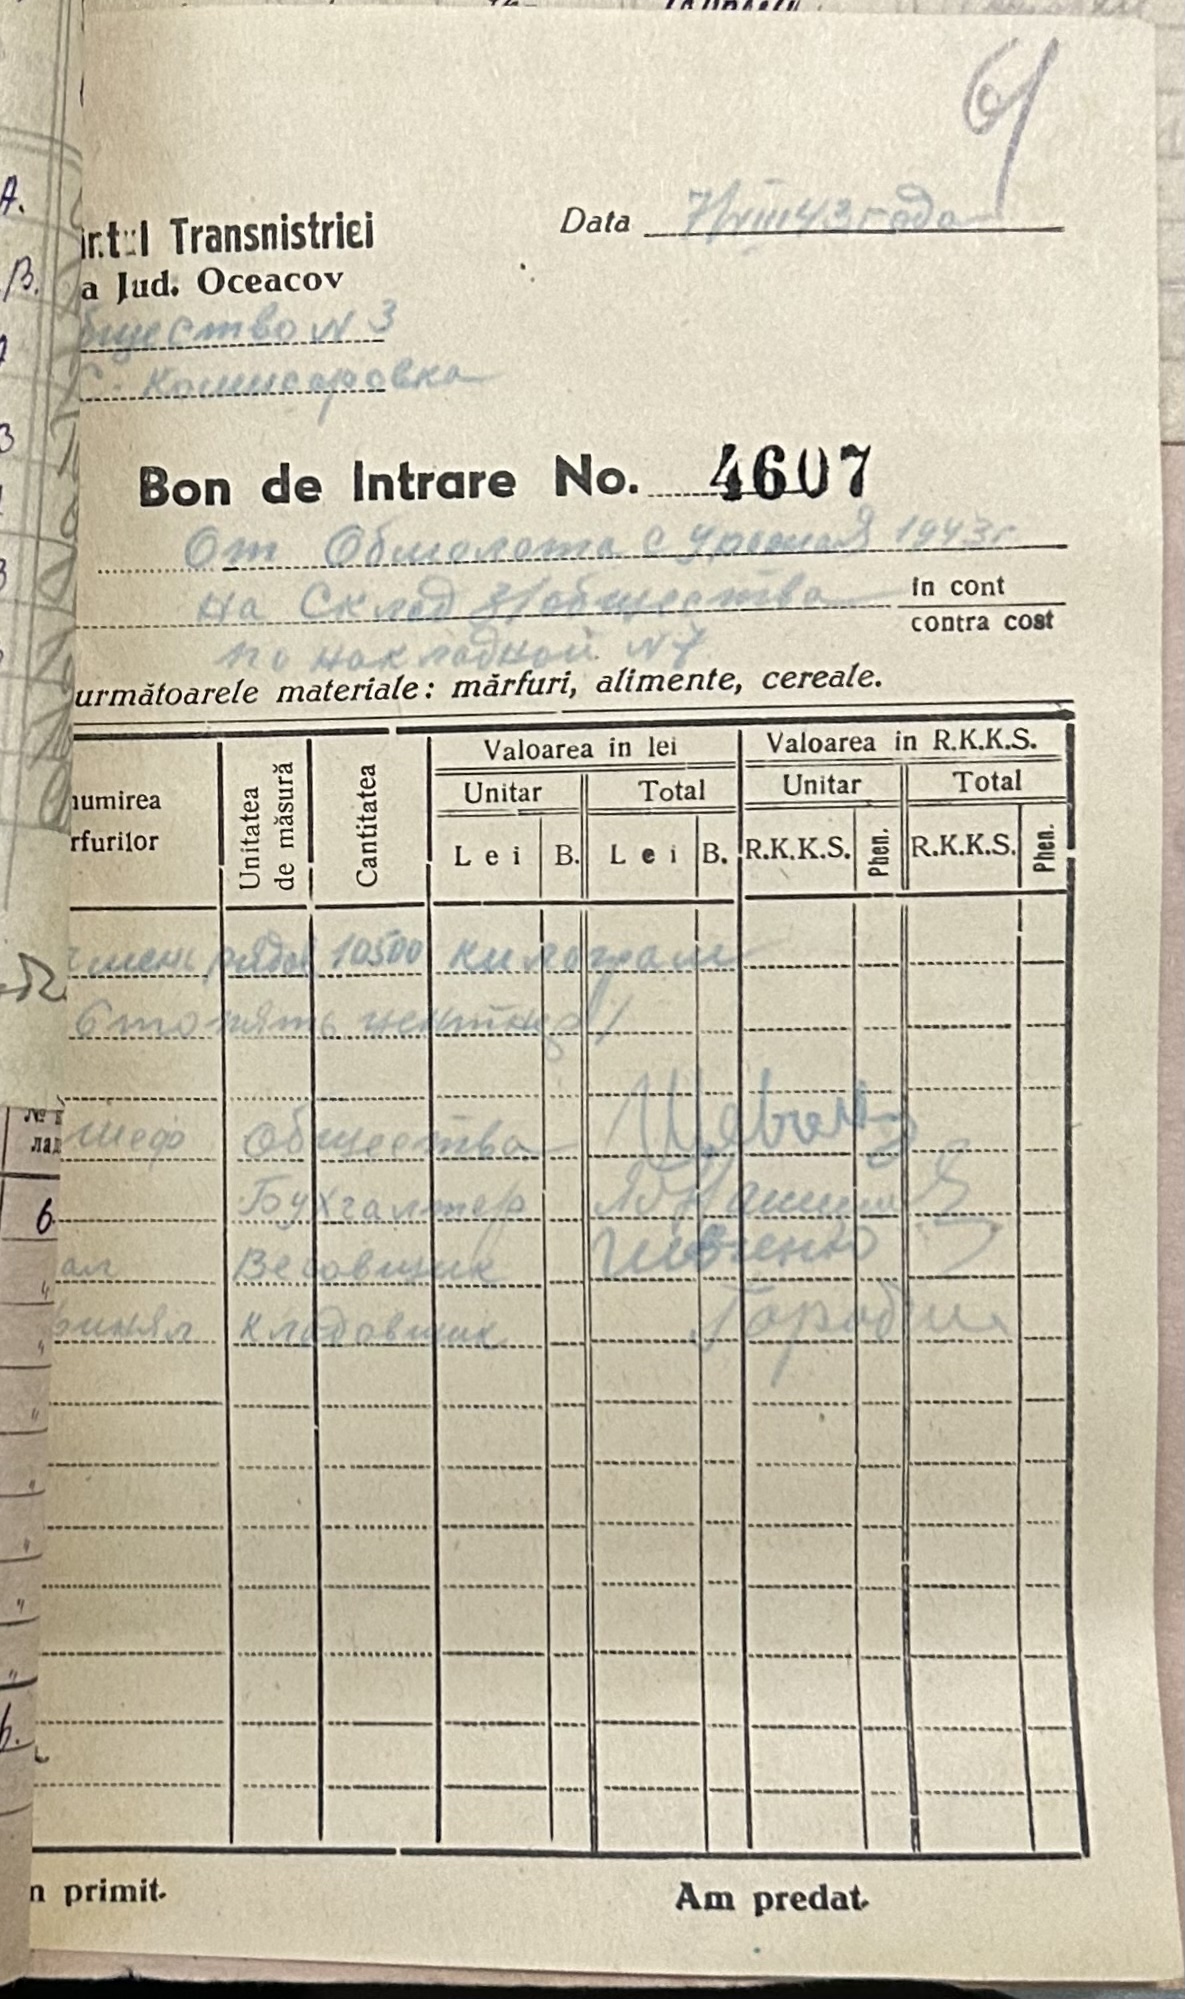 61
Data 7/VIII 43 года
Transnistriei
a Jud. Oceacov
бщество N 3
С. Комисаровка
Bon de Intrare No. 4607
От Обмолота с Урожая 1943 г
на Склад 3/общества
in cont
contra cost
по накладной N 7
următoarele materiale: mărfuri, alimente, cereale.
numirea
rfurilor
Unitatea de măsură
Cantitatea
Valoarea in lei
Valoarea in R.K.K.S.
Unitar Total Unitar Total
Lei B. Lei B. R.K.K.S. Phen. R.K.K.S. Phen.
чмень рядов 10500 килограм
Сто пять центнер/
Шеф Общества
Бухгалтер
ал Весовщик Шевченко
инял кладовщик
n primit.
Am predat.